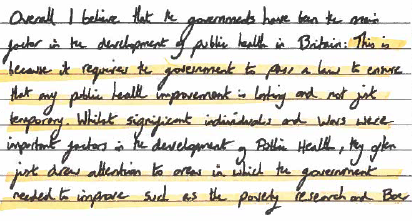 Overall I believe that the governments have been the main
factor in the development of public health in Britain: This is
because it requires the government to pass a law to ensure
that any public health improvement is lasting and not just
temporary. Whilst significant individuals and Wars were
important factors in the development of Public Health, they often
just draw attention to areas in which the government
needed to improve such as the poverty research and Boer